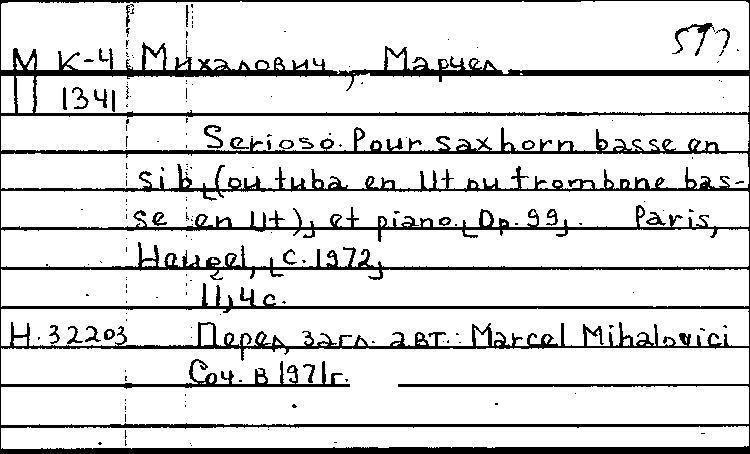 597.
М К-4 Михалович, Марчел
П 1341
Serioso. Pour saxhorn basse en
sib [(ou tuba en Ut ou trombone bas-
se en Ut)] et piano. [Op. 99]. Paris,
Heugel, [c. 1972]
11, 4 с.
Н. 32203 Перед загл. авт.: Marcel Mihalovici
Соч. в 1971г.